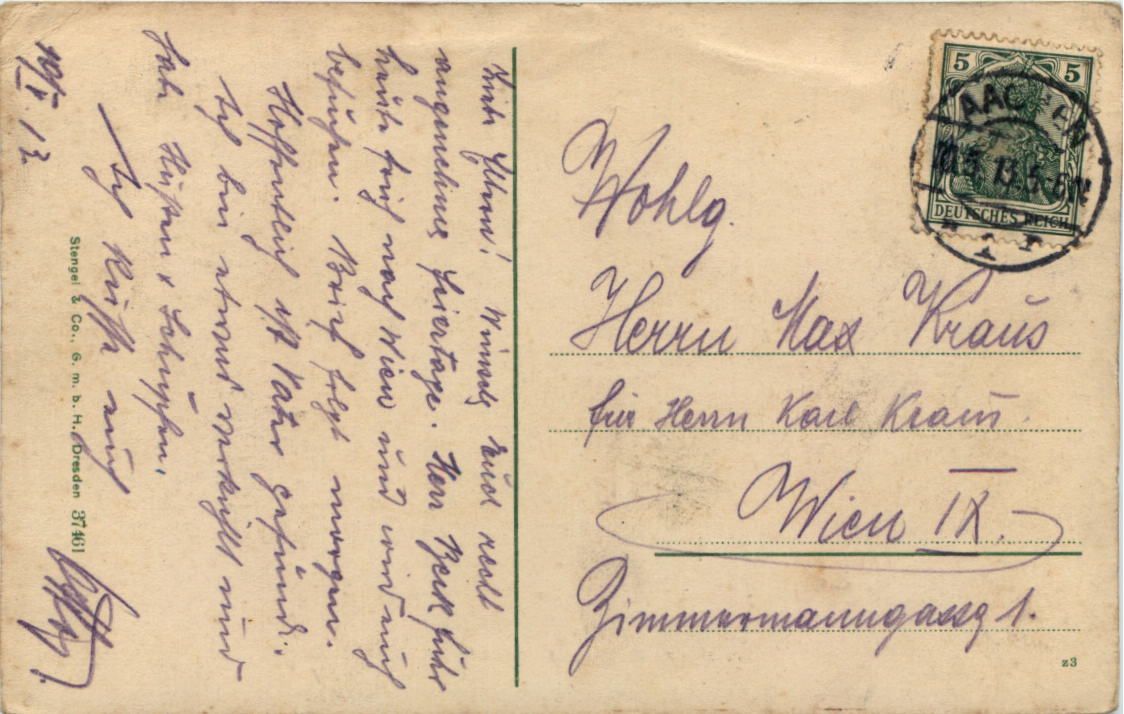 Liebe Eltern! Wünsche Euch recht
angenehme Feiertage. Herr Beck fuhr
heute früh nach Wien und wird euch
besuchen. Brief folgt morgen.
Hoffentlich ist Vater gesund.
Ich bin etwas verkühlt und
habe Husten & Schnupfen.
Ich küsse euch
10/V. 13
Stengel & Co., G. m. b. H. Dresden 37461
5 5
DEUTSCHES REICH
AACHEN
10.5.13.5-6N
Wohlg.
Herrn Max Kraus
für Herrn Karl Kraus.
Wien IX.
Zimmermanngasse 1.
z3